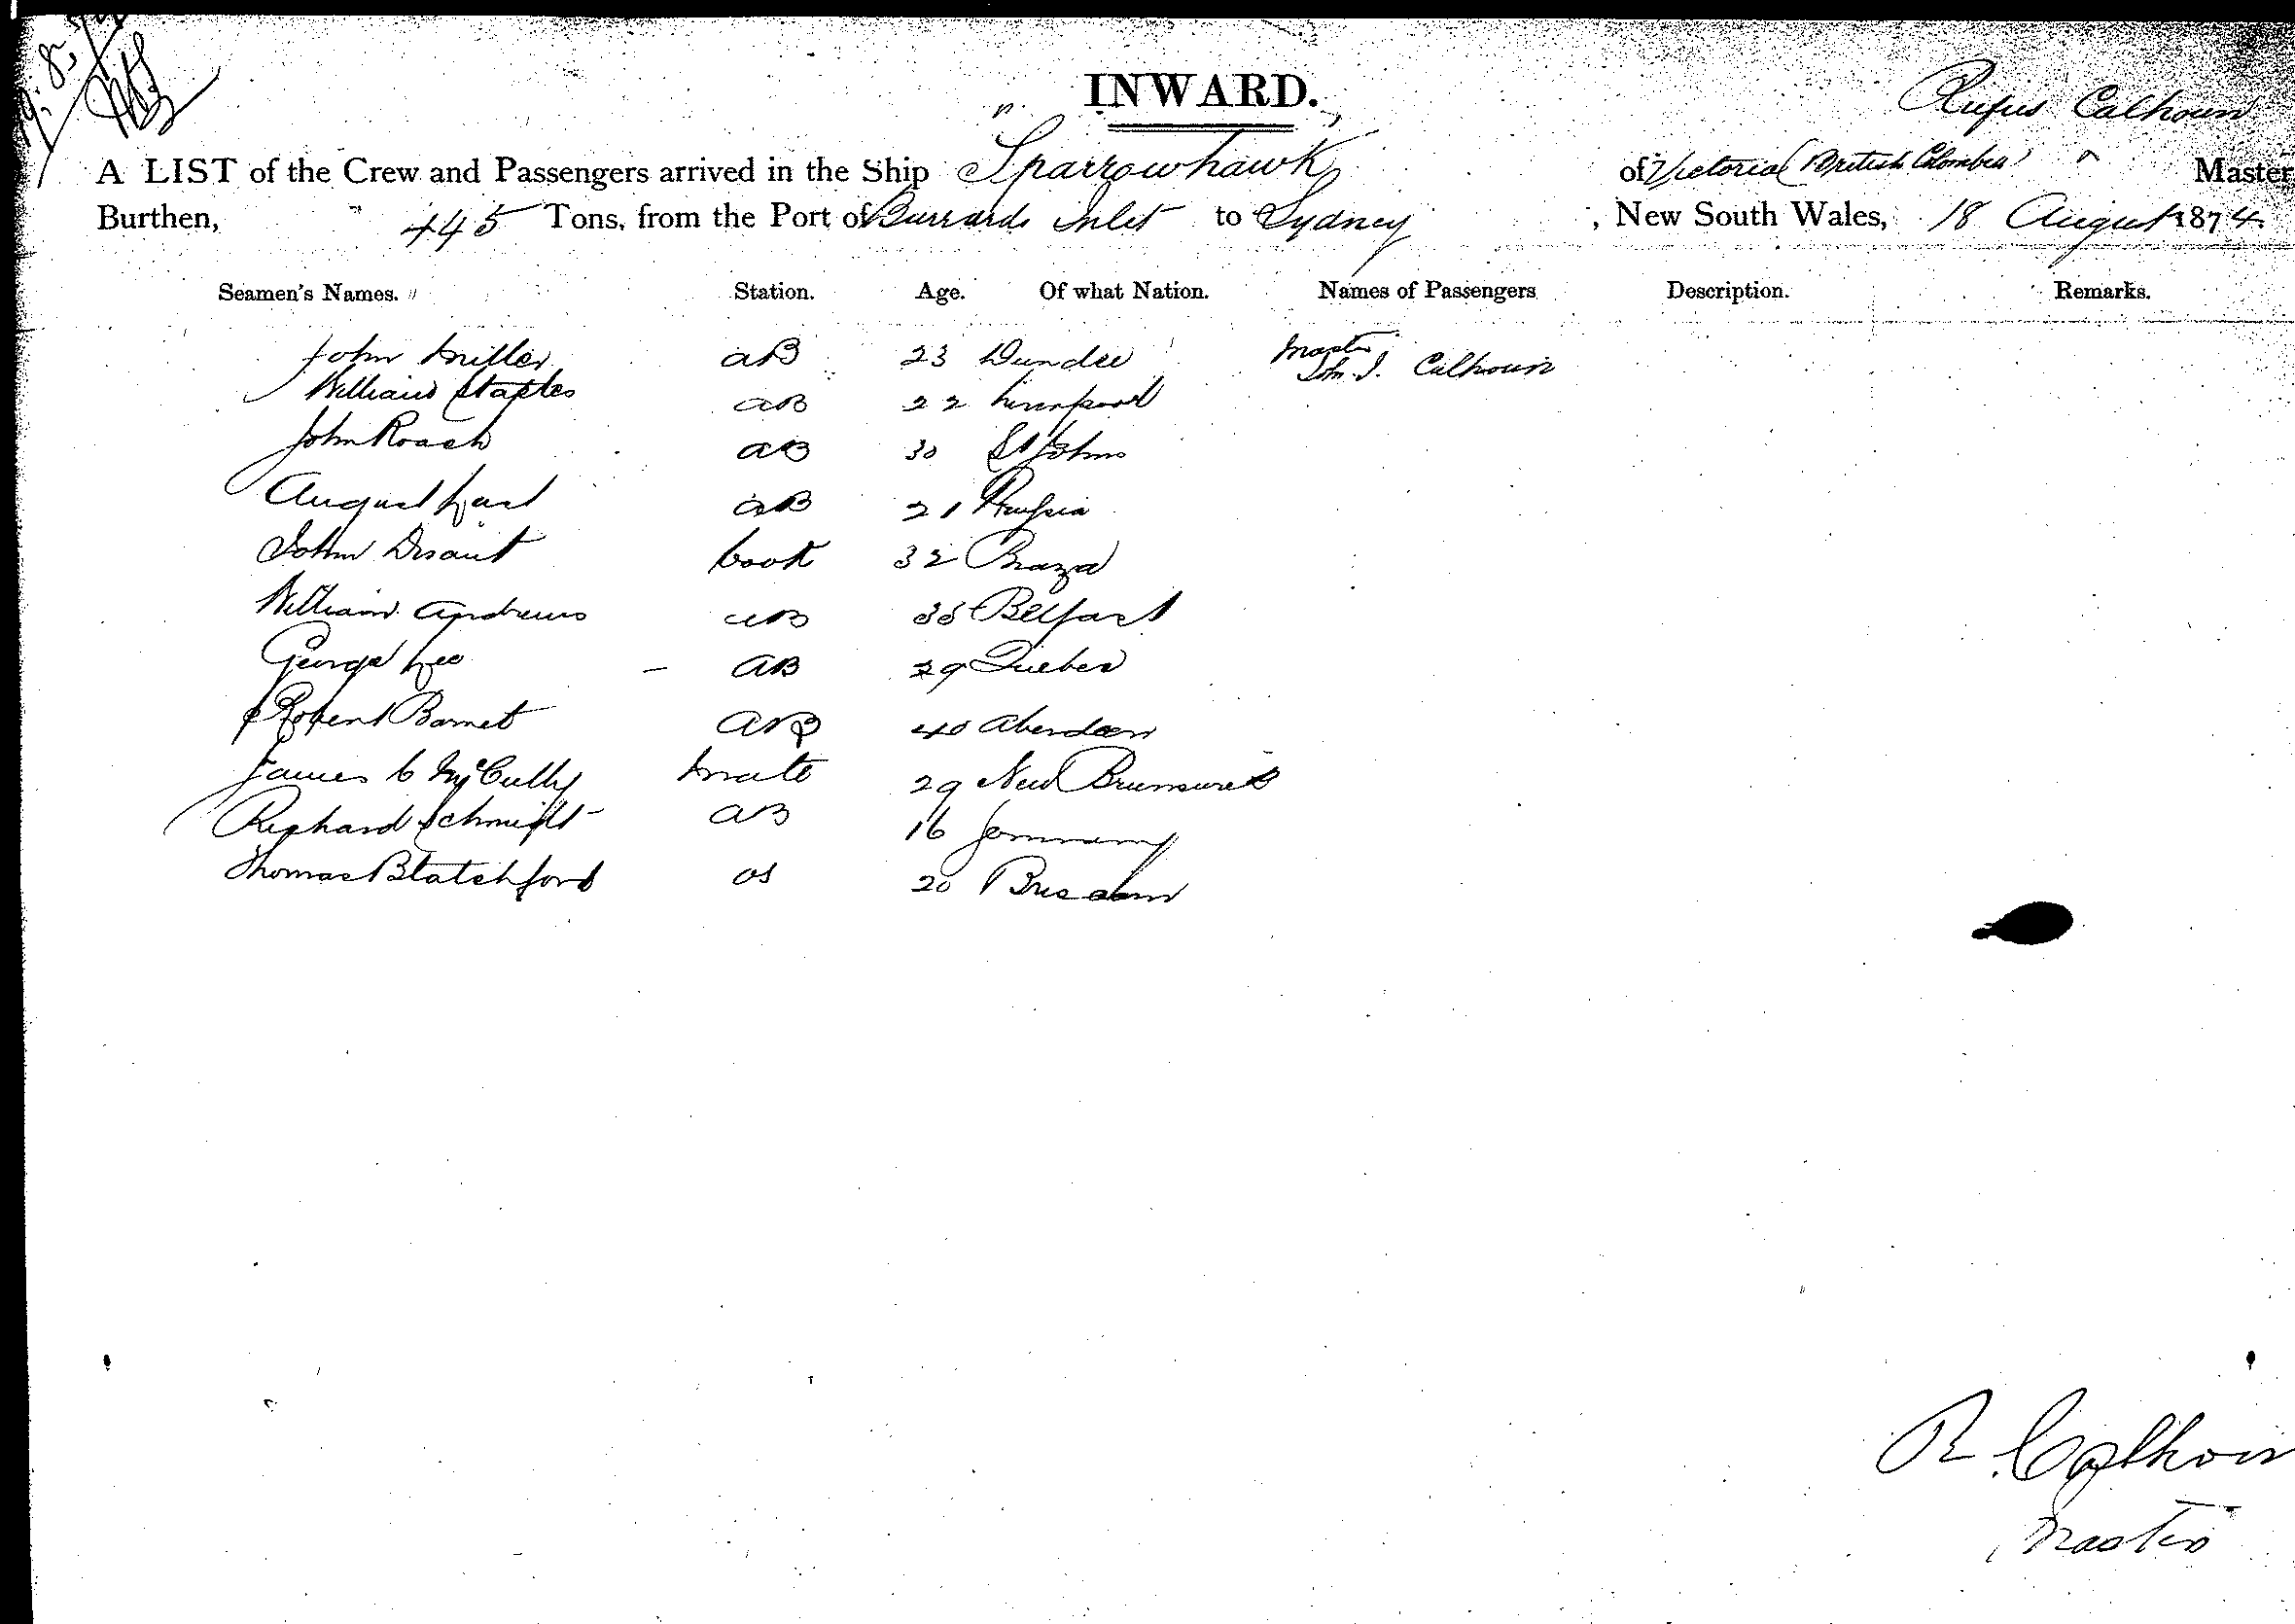 INWARD.
Rufus Calhoun
A LIST of the Crew and Passengers arrived in the Ship "Sparrowhawk" of Victoria (British Colombia) Master
Burthen, 445 Tons, from the Port of Burrards Inlet to Sydney, New South Wales, 18 August 1874.
Seamen's Names. Station. Age. Of what Nation. Names of Passengers Description. Remarks.
John Miller AB 23 Dundee Master John I. Calhoun
William Staples AB 22 Liverpool
John Roach AB 30 St Johns
August AB 21 Prussia
John Cook 32
William Andrews AB 35 Belfast
George Lee AB 29 Quebec
Robert Barnet AB 40 Aberdeen
James C McCully Mate 29 New Brunswick
Richard Schmidt AB 16 Germany
Thomas Blatchford OS 20
R. Calhoun
Master